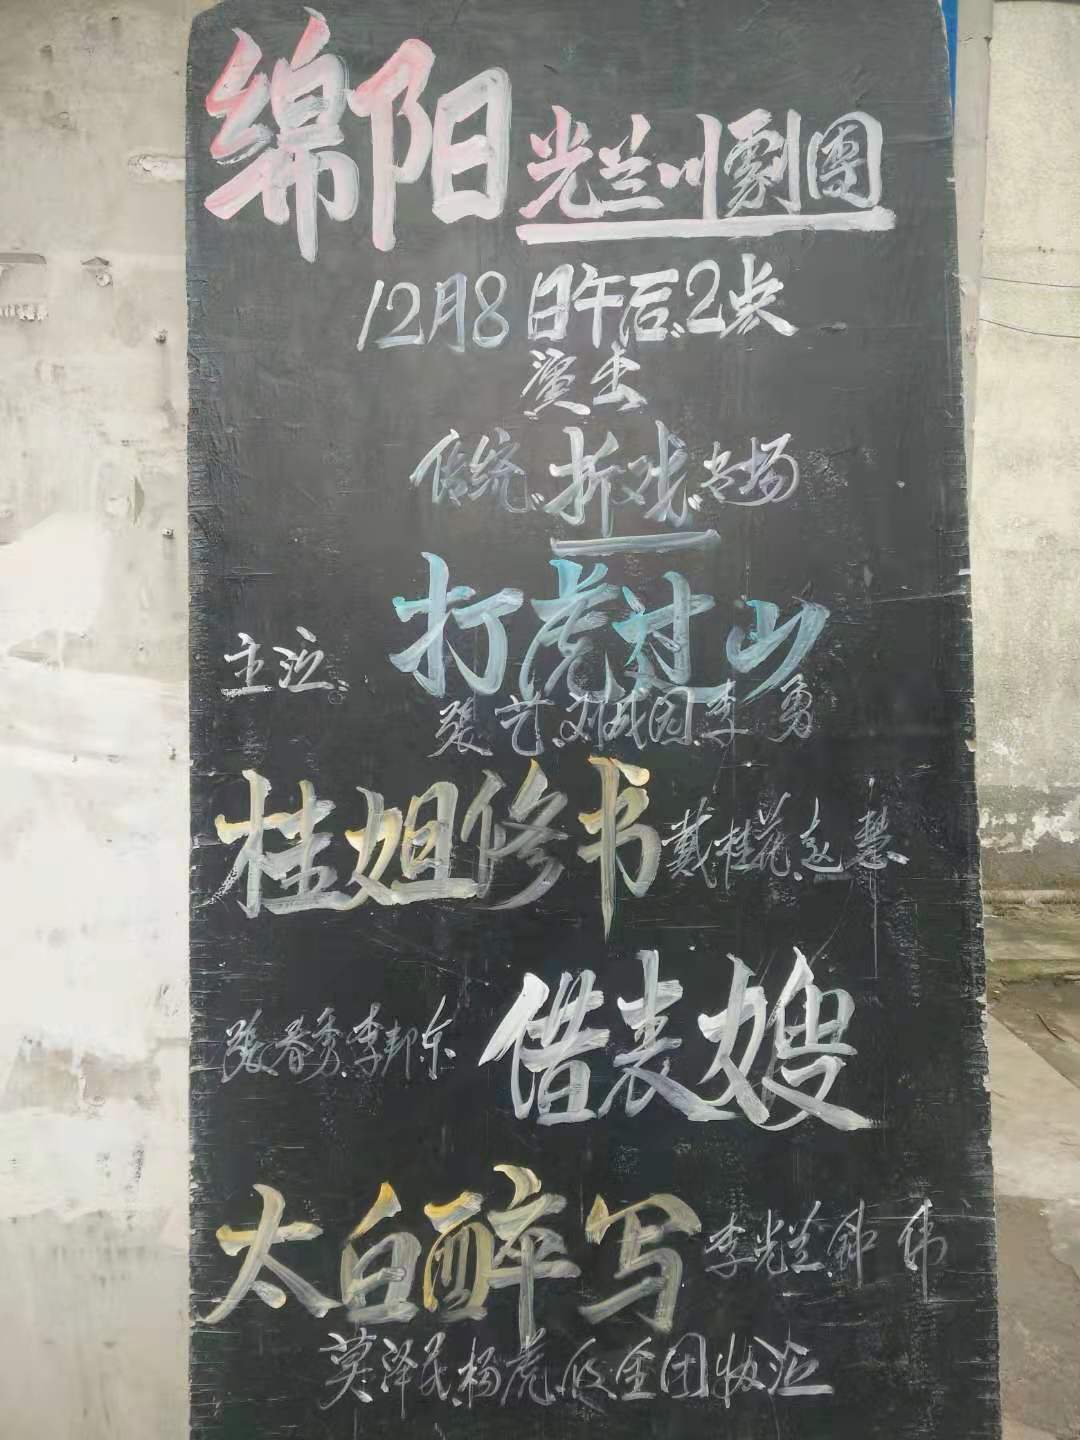 绵阳光兰川劇團
12月8日午后2点
演出
传统折戏专场
打虎过山
主演
張艺 刘成国 李勇
桂姐修书 戴桂花 赵慧
張春秀 李邦东 借表嫂
太白醉写 李光兰 钟伟
莫泽民 杨虎 及全团协演